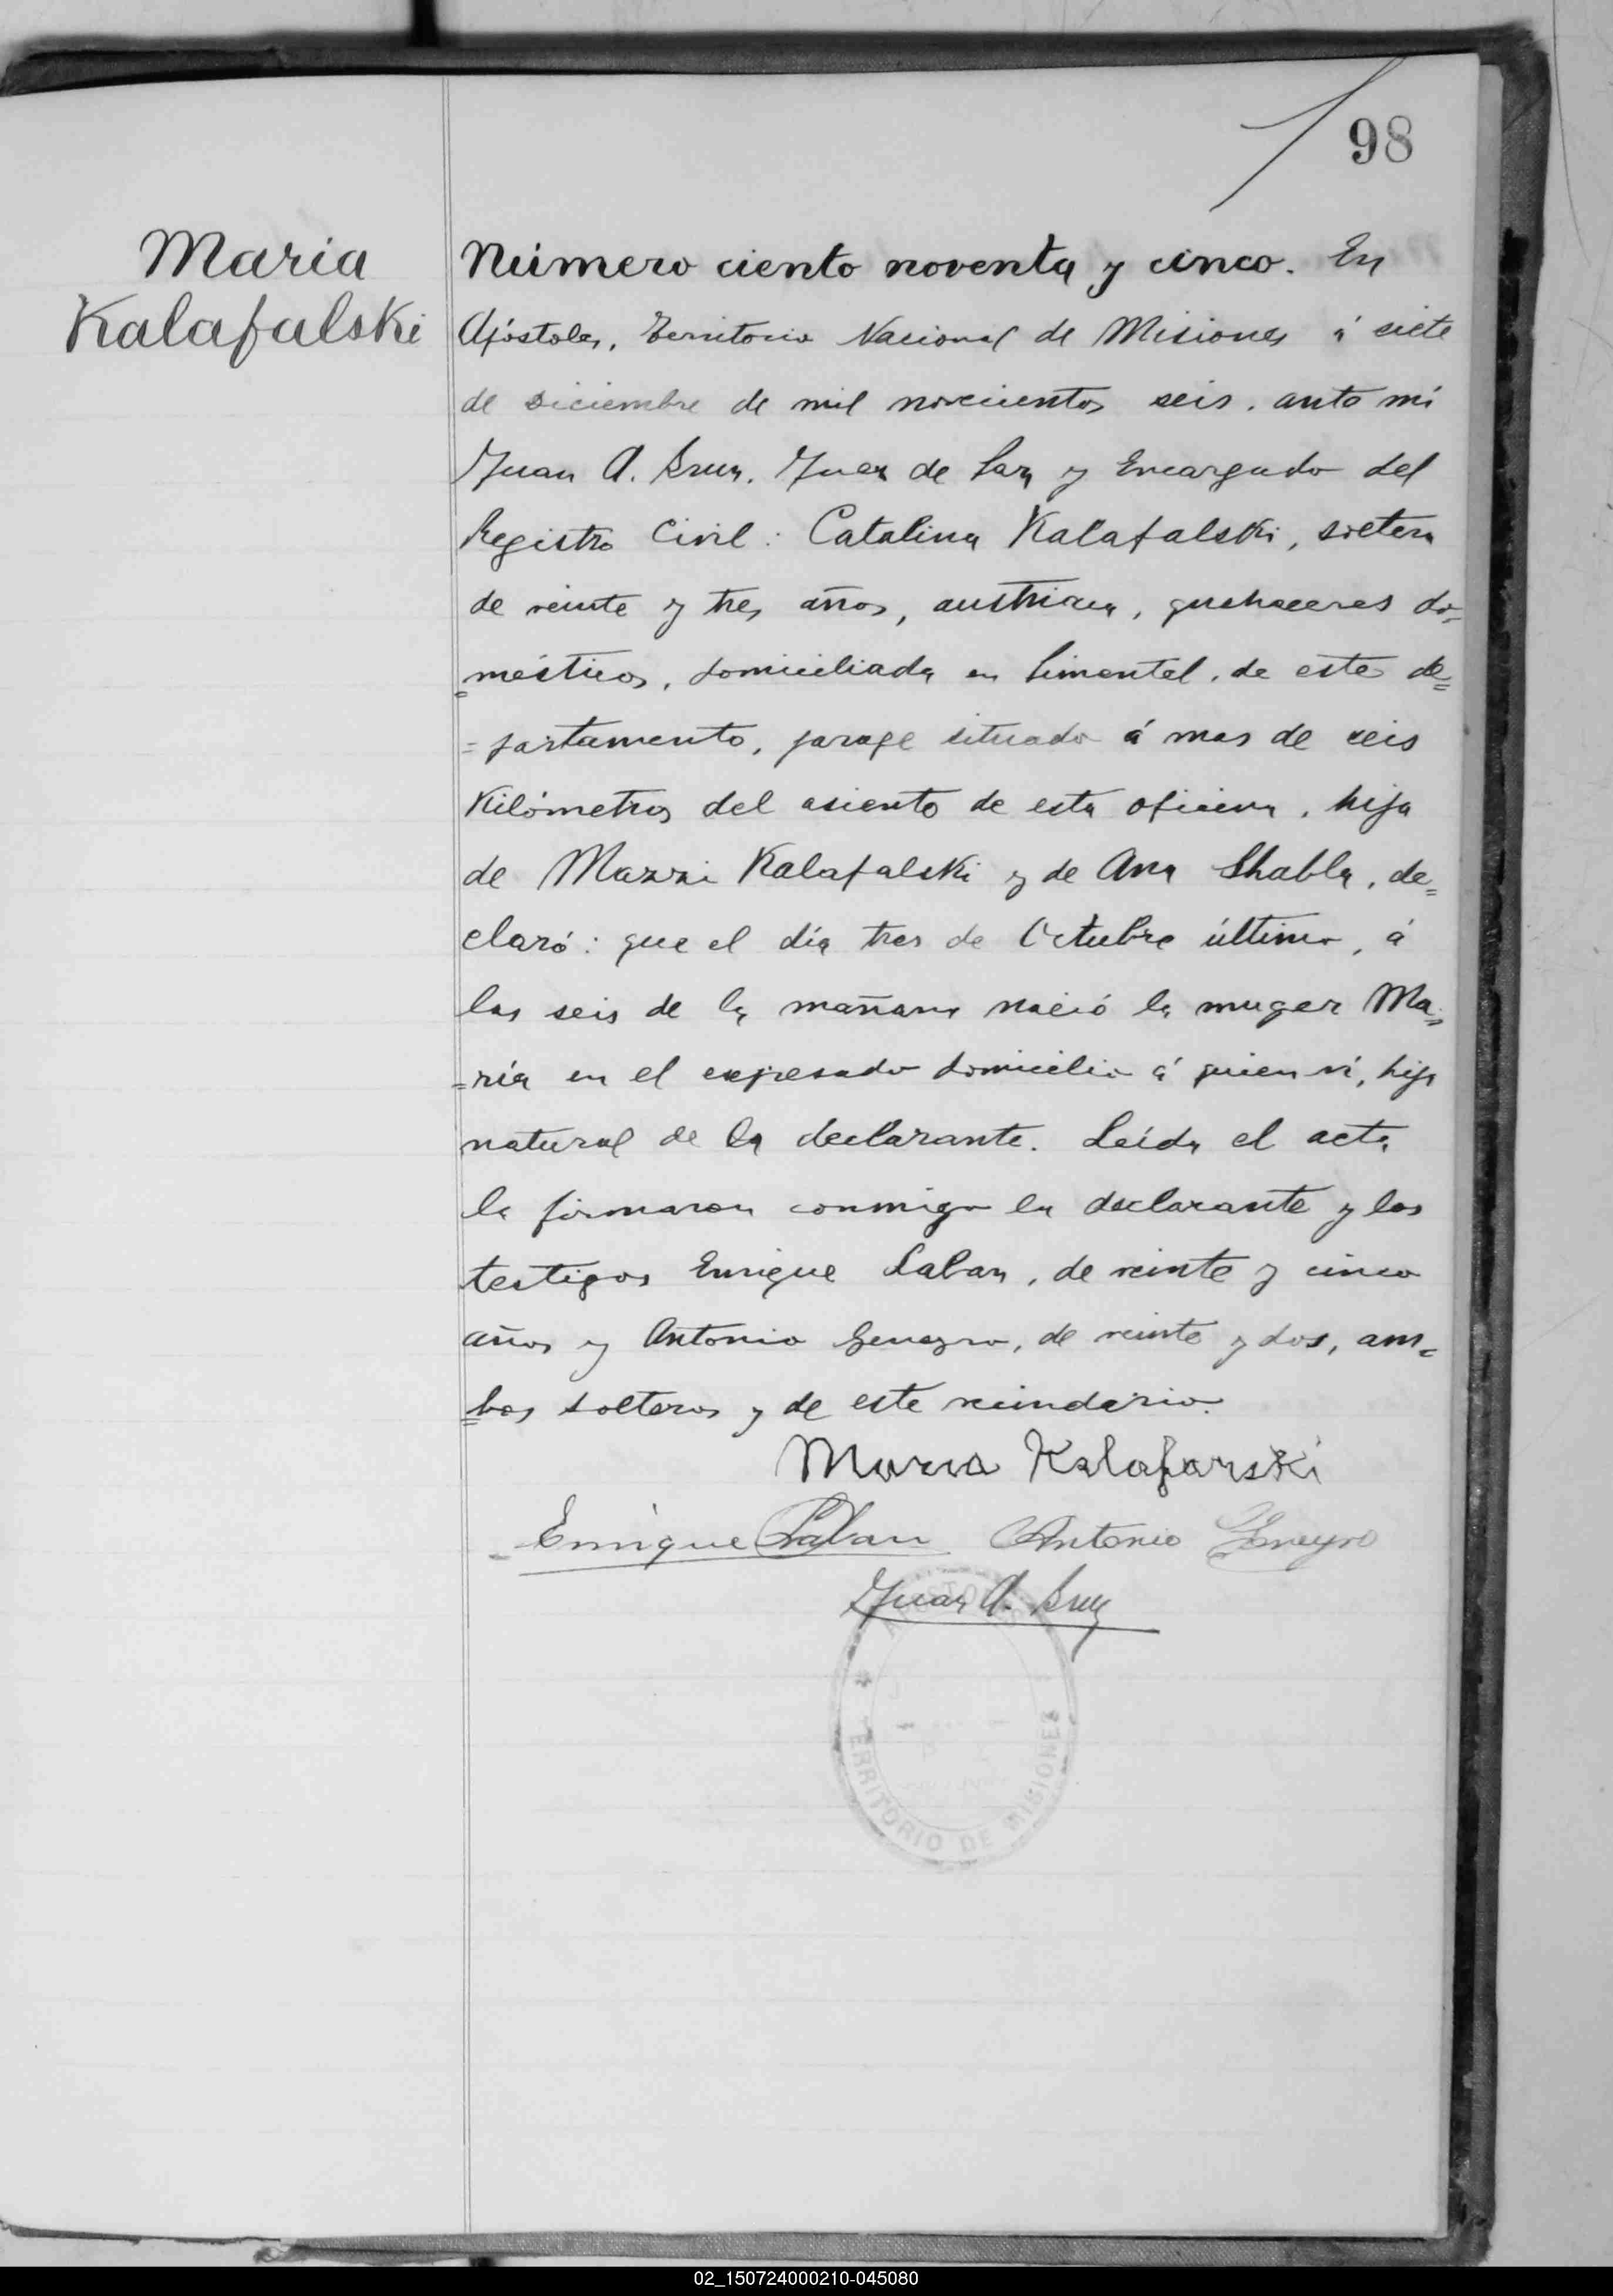 98
Maria
Kalafalski
Número ciento noventa y cinco. En
Apóstoles, Territorio Nacional de Misiones á siete
de Diciembre de mil novecientos seis. ante mí
Juan A. Juez de Paz y Encargado del
Registro Civil: Catalina Kalafalski, soltera
de veinte y tres años, austriaca, quehaceres do-
=mésticos, domiciliada en Pimentel, de este de=
=partamento, parage situado á mas de seis
Kilómetros del asiento de esta oficina, hija
de Mazzi Kalafalski y de Ana Shabla, de=
claró: que el día tres de Octubre último, á
las seis de la mañana nació la muger Ma=
=ría en el expresado domicilio á quien ví, hija
natural de la declarante. Leída el acta
la firmaron conmigo la declarante y los
testigos Enrique Laban, de veinte y cinco
años y Antonio de veinte y dos, am=
=bos solteros y de este vecindario.
Maria Kalafarski
Enrique Laban Antonio
Juan A.
TERRITORIO DE MISIONES
02_150724000210-045080